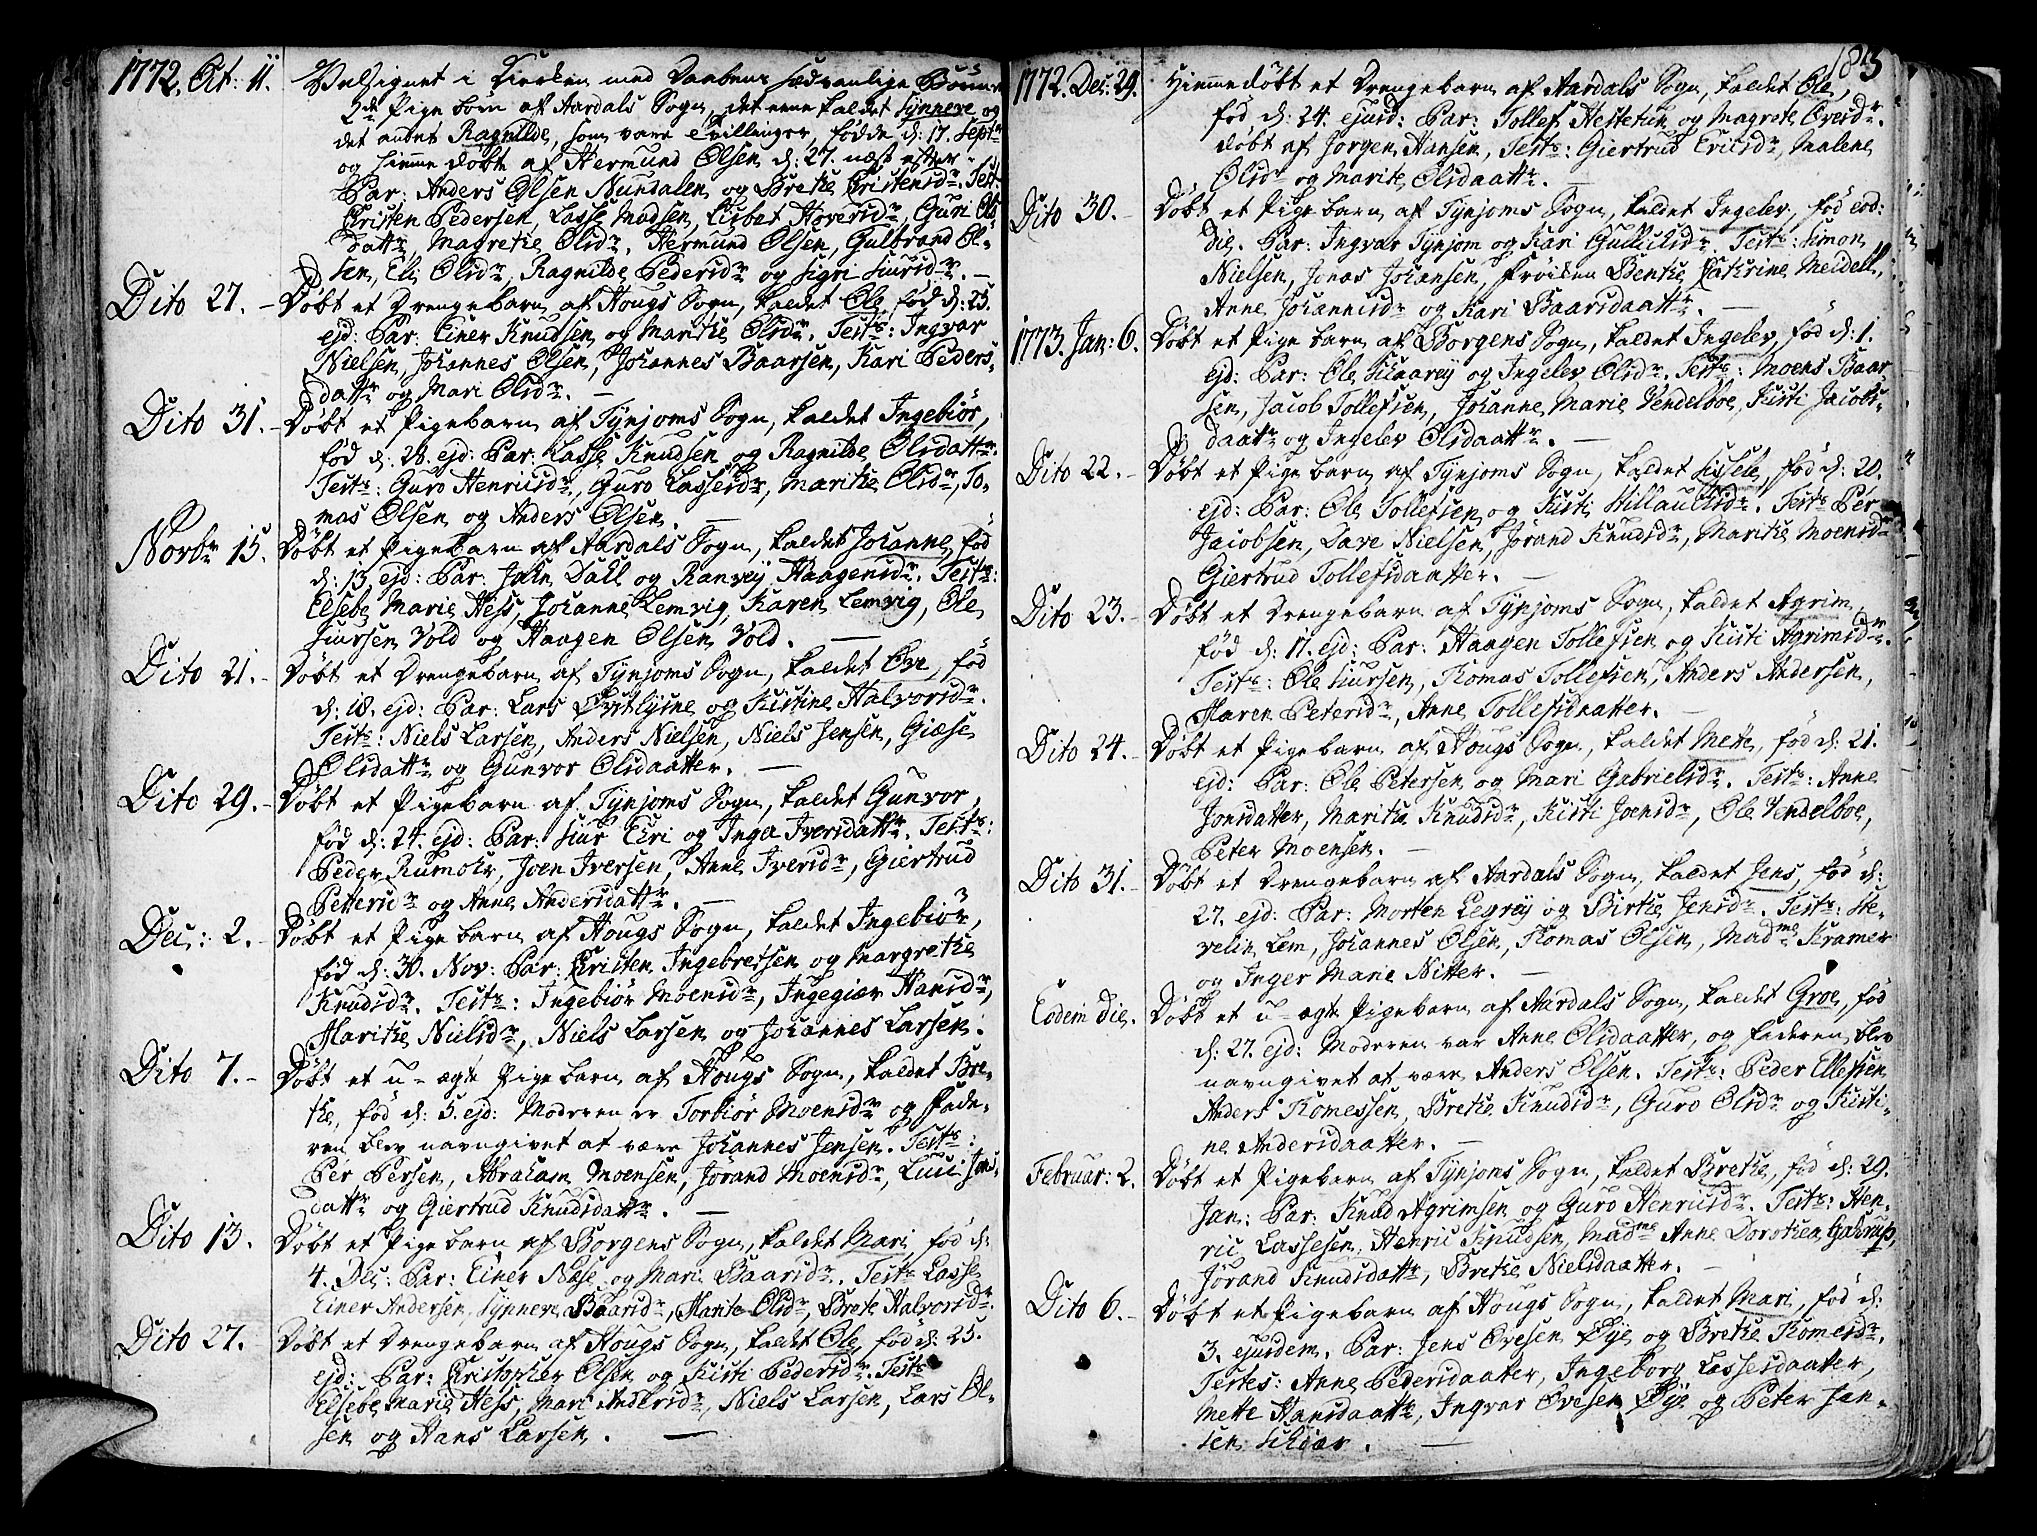 1772. Oct: 11. Velsignet i Kirken med Daabens sædvanlige Bønner
2de Pigebørn af Aardals Sogn, det eene kaldet Synneve og
det andet Ragnilde, som vare Tvillinger, fødde d: 17. Septr
og hiemme døbt af Hermund Olsen d: 27. næst efter.
Par: Anders Olsen Nundalen og Brethe Cristensdr. Test:
Cristen Pedersen, Lasse Madsen, Lisbet Hoversdr, Guri Ols
dattr, Magrethe Olsdr, Hermund Olsen, Gulbrand Ol-
sen, Eli Olsdr, Ragnilde Pedersdr og Sigri Siursdr. -
Dito 27. - Døbt et Drengebarn af Hougs Sogn, kaldet Ole, fød d: 25.
ejd: Par: Einer Knudsen og Marithe Olsdr. Tests: Ingvar
Nielsen, Johannes Olsen, Johannes Baarsen, Kari Peders-
dattr og Mari Olsdr. -
Dito 31. - Døbt et Pigebarn af Tynjoms Sogn, kaldet Ingebiør,
fød d: 28. ejd: Par: Lasse Knudsen og Ragnilde Olsdattr.
Tests: Guro Henricsdr, Guro Lassesdr, Marithe Olsdr, To-
mas Olsen og Anders Olsen. -
Novbr 15. Døbt et Pigebarn af Aardals Sogn, kaldet Johanne, fød
d: 13. ejd: Par: John Dahl og Ranvey Haagensdr. Tests:
Elsebe Marie Hess, Johanne Lemvig, Karen Lemvig, Ole
Siursen Vold og Haagen Olsen Vold. -
Dito 21. - Døbt et Drengebarn af Tynjoms Sogn, kaldet Ove, fød
d: 18. ejd: Par: Lars Qvitlyine og Kistine Halvorsdr.
Tests: Niels Larsen, Anders Nielsen, Niels Jensen, Giæse
Olsdattr og Gunvor Olsdaatter. -
Dito 29. - Døbt et Pigebarn af Tynjoms Sogn, kaldet Gunvor,
fød d: 24. ejd: Par: Siur Eri og Inger Iversdattr. Tests:
Peder Rumohr, Joen Iversen, Anne Iversdr, Giertrud
Pettersdr og Anne Andersdattr. -
Dec: 2. - Døbt et Pigebarn af Hougs Sogn, kaldet Ingebiør,
fød d: 30. Nov: Par: Cristen Ingebretsen og Margrethe
Knudsdr. Tests: Ingebiør Moensdr, Ingegiær Hansdr,
Marithe Nielsdr, Niels Larsen og Johannes Larsen.
Dito 7. - Døbt et u-ægte Pigebarn af Hougs Sogn, kaldet Bre-
the, fød d: 5. ejd: Moderen er Torbiør Moensdr og Fade-
ren blev navngivet at være Johannes Jensen. Tests:
Per Persen, Abraham Moensen, Jørand Moensdr, Luci Jens-
dattr og Giertrud Knudsdattr. -
Dito 13. Døbt et Pigebarn af Borgens Sogn, kaldet Mari, fød d:
4. Dec: Par: Einer Næse og Mari Baarsdr. Tests Lasse
Einer Andersen, Synneve Baarsdr, Marite Olsdr, Brete Halvorsdr.
Dito 27. Døbt et Drengebarn af Hougs Sogn, kaldet Ole, fød d: 25.
ejd: Par: Cristopher Olsen og Kisti Pedersdr. Tests
Elsebe Marie Hess, Mari Andersdr, Niels Larsen, Lars Ol-
sen og Hans Larsen. -
183
1772. Dec: 29. Hiemmedøbt et Drengebarn af Aardals Sogn, kaldet Ole,
fød d: 24. ejusd: Par: Tollef Hestetun og Magrete Oversdr.
døbt af Jørgen Hansen, Tests: Giertrud Ericsdr, Malene
Olsdr og Marite Olsdaattr. -
Dito 30. - Døbt et Pigebarn af Tynjoms Sogn, kaldet Ingelev, fød eod:
die. Par: Ingvar Tynjom og Kari Gulliksdr. Tests: Simon
Nielsen, Jonas Johansen, Frøiken Benthe Cathrine Meidell,
Anne Johannisdr og Kari Baarsdaattr. -
1773. Jan: 6. Døbt et Pigebarn af Borgens Sogn, kaldet Ingelev, fød d: 1.
ejd: Par: Ole Kaarey og Ingelev Olsdr. Tests: Moens Baar-
sen, Jacob Tollefsen, Johanne Marie Vendelboe, Kisti Jacobs-
daatr og Ingelev Olsdaattr. -
Dito 22. - Døbt et Pigebarn af Tynjoms Sogn, kaldet Sissele, fød d: 20.
ejd: Par: Ole Tollefsen og Kisti Villaulisdr. Tests Per
Jacobsen, Dave Nielsen, Jørand Knudsdr, Marithe Moensdr
Giertrud Tollefsdaatter. -
Dito 23. - Døbt et Drengebarn af Tynjoms Sogn, kaldet Agrim,
fød d: 17. ejd: Par: Haagen Tollefsen og Kisti Agrimsdr.
Tests: Ole Siursen, Tomas Tollefsen, Anders Andersen,
Maren Petersdr, Anne Tollefsdaatter. -
Dito 24. - Døbt et Pigebarn af Hougs Sogn, kaldet Mette, fød d: 21.
ejd: Par: Ole Petersen og Mari Gabrielsdr. Tests: Anne
Jonsdatter, Marithe Knudsdr, Kisti Joensdr, Ole Vendelboe,
Peter Moensen. -
Dito 31. - Døbt et Drengebarn af Aardals Sogn, kaldet Jens, fød d:
27. ejd: Par: Morten Legrey og Birthe Jensdr. Tests: Ste-
velin Lem, Johannes Olsen, Tomas Olsen, Madme Kramer
og Inger Marie Nitter. -
Eodem Die. Døbt et u-ægte Pigebarn af Aardals Sogn, kaldet Groe, fød
d: 27. ejd: Moderen var Anne Olsdaatter, og Faderen blev
navngivet at være Anders Elsen. Tests: Peder Ellefsen
Anders Tomessen, Brethe Knudsdr, Guro Olsdr og Kisti-
ne Andersdaatter. -
Februar: 2. Døbt et Pigebarn af Tynjoms Sogn, kaldet Brethe, fød d: 29.
Jan: Par: Knud Agrimsen og Guro Henricsdr. Tests: Hen-
ric Lassesen, Henric Knudsen, Madme Anne Dorothea Gattrup,
Jørand Knudsdattr, Brethe Nielsdaatter. -
Dito 6. - Døbt et Pigebarn af Hougs Sogn, kaldet Mari, fød d:
3. ejusdem. Par: Jens Ovesen Øye og Brethe Tomesdr.
Testes: Anne Pedersdaatter, Ingeborg Lassesdaatter,
Mette Hansdaattr, Ingvar Ovesen Øye og Peter Jan-
sen Skiær. -